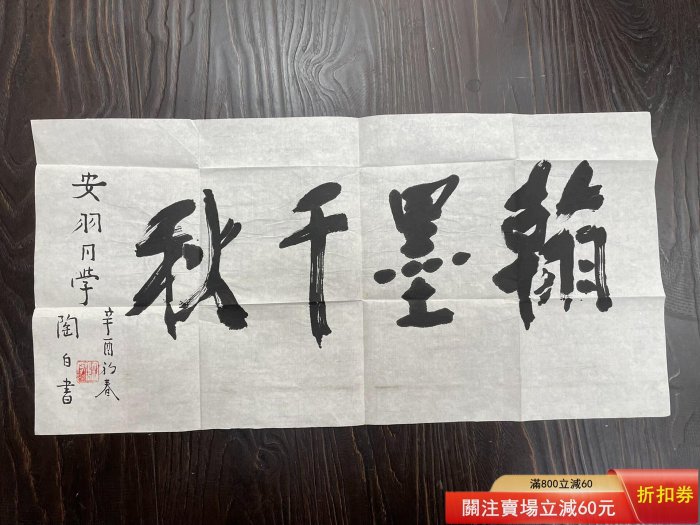 翰墨千秋
安羽同学
辛酉初春
陶白書
滿800立減60
關注賣場立減60元
折扣券